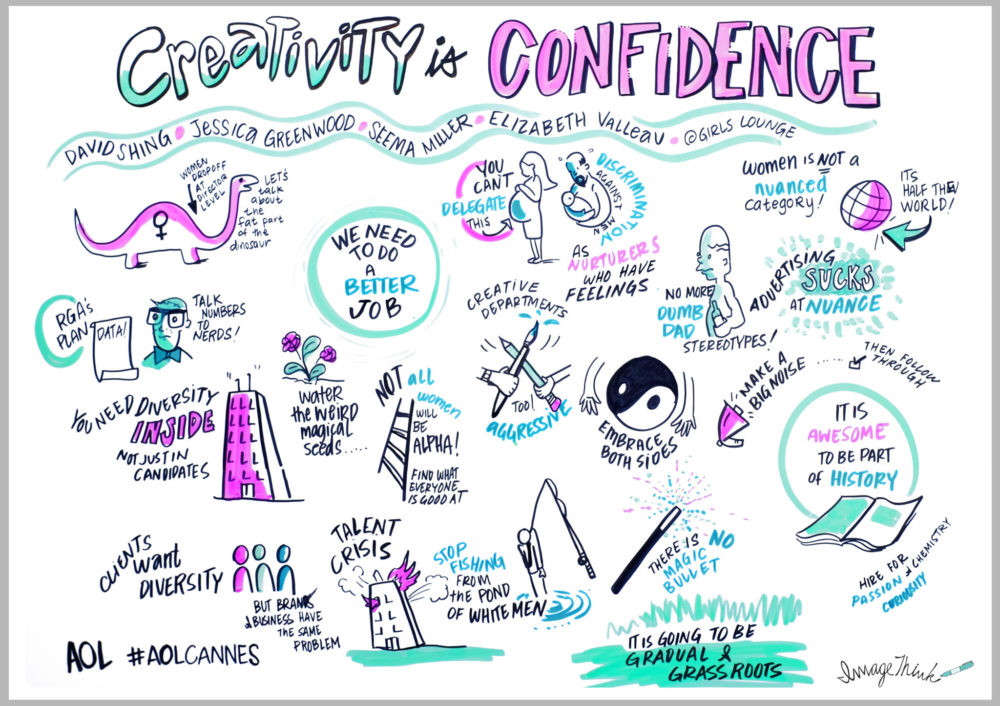 CREATIVITY is CONFIDENCE
DAVID SHING • JESSICA GREENWOOD • SEEMA MILLER • ELIZABETH VALLEAU • @GIRLS LOUNGE
WOMEN
DROPOFF
AT
DIRECTOR
LEVEL
LET'S
talk
about
the
fat part
of the
dinosaur
WE NEED
TO DO
A
BETTER
JOB
YOU
CAN'T
DELEGATE
THIS
DISCRIMINATION
AGAINST MEN
AS
NURTURERS
WHO HAVE
FEELINGS
WOMEN IS NOT a
nuanced
category!
ITS
HALF THE
WORLD!
RGA's
PLAN
DATA!
TALK
NUMBERS
TO
NERDS!
CREATIVE
DEPARTMENTS
TOO!
AGGRESSIVE
NO MORE
DUMB
DAD
STEREOTYPES!
ADVERTISING
SUCKS
AT NUANCE
YOU NEED DIVERSITY
INSIDE
NOT JUST IN
CANDIDATES
water
the weird
magical
seeds.....
NOT all
women
WILL
BE
ALPHA!
FIND WHAT
EVERYONE
IS GOOD AT
EMBRACE
BOTH SIDES
MAKE A
BIG NOISE
...... THEN FOLLOW
THROUGH
IT IS
AWESOME
TO BE PART
OF HISTORY
CLIENTS
want
DIVERSITY
BUT BRANDS
& BUSINESS HAVE
THE SAME
PROBLEM
TALENT
CRISIS
STOP
FISHING
FROM
the POND
OF WHITE MEN
THERE IS NO
MAGIC
BULLET
HIRE FOR
PASSION & CHEMISTRY
CURIOSITY
IT IS GOING TO BE
GRADUAL &
GRASSROOTS
AOL #AOLCANNES
ImageThink